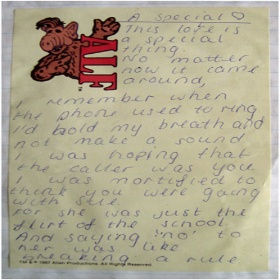 A Special ♡
This love is
a special
thing.
No matter
how it came
around,
ALF
I remember when
the phone used to ring
I'd hold my breath and
not make a sound
I was hoping that
the caller was you
I was mortified to
think you were going
with Sue.
For she was just the
flirt of the school
And saying "no" to
her was like
breaking a rule
TM & © 1987 Alien Productions. All Rights Reserved.